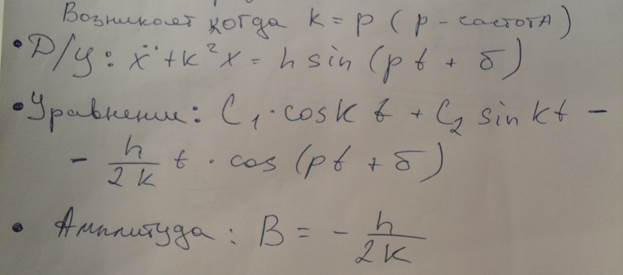 Возникает когда k = p ( p - частота)
• Д/у: ẍ + k²x = h sin (pt + δ)
• Уравнение: C₁ · cos k t + C₂ sin kt -
- h/2k t · cos (pt + δ)
• Амплитуда: B = - h/2k